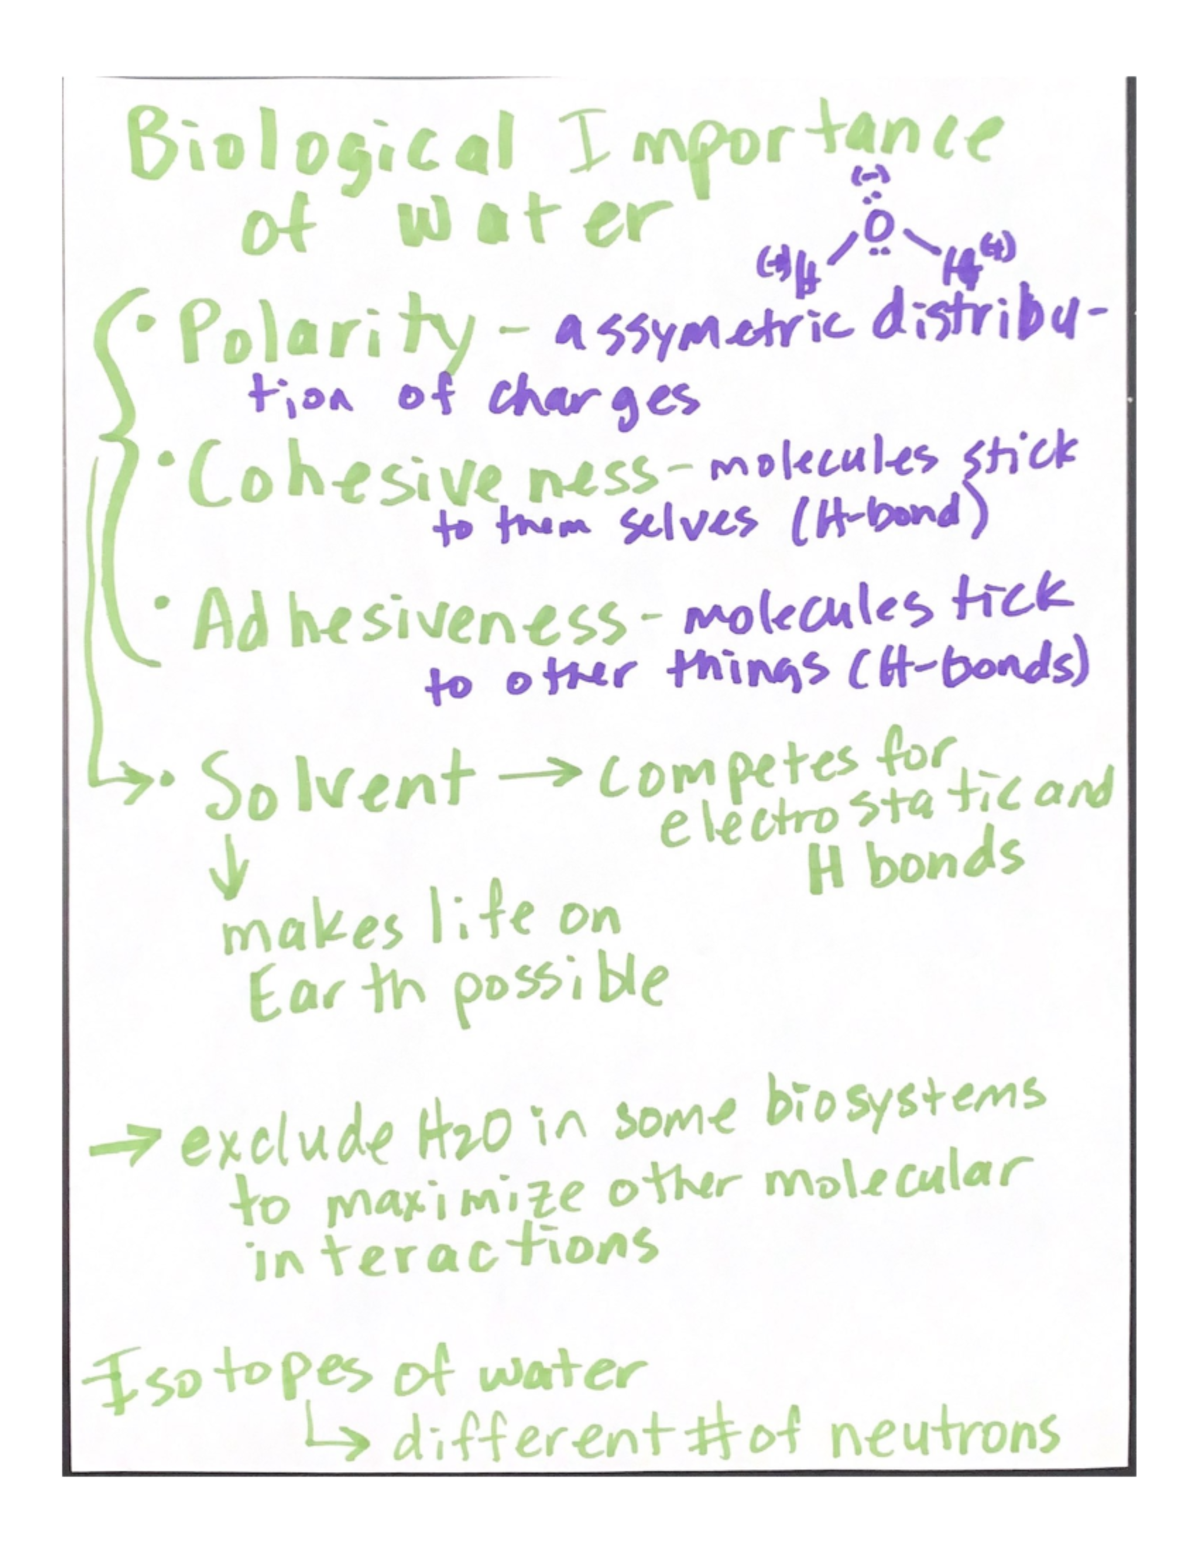 Biological Importance
of water
(-)
O
(+)H H(+)
• Polarity - assymetric distribu-
tion of charges
• Cohesiveness - molecules stick
to them selves (H-bond)
• Adhesiveness - molecules tick
to other things (H-bonds)
→• Solvent → competes for
electrostatic and
H bonds
↓
makes life on
Earth possible
→ exclude H2O in some biosystems
to maximize other molecular
interactions
Isotopes of water
↳ different # of neutrons